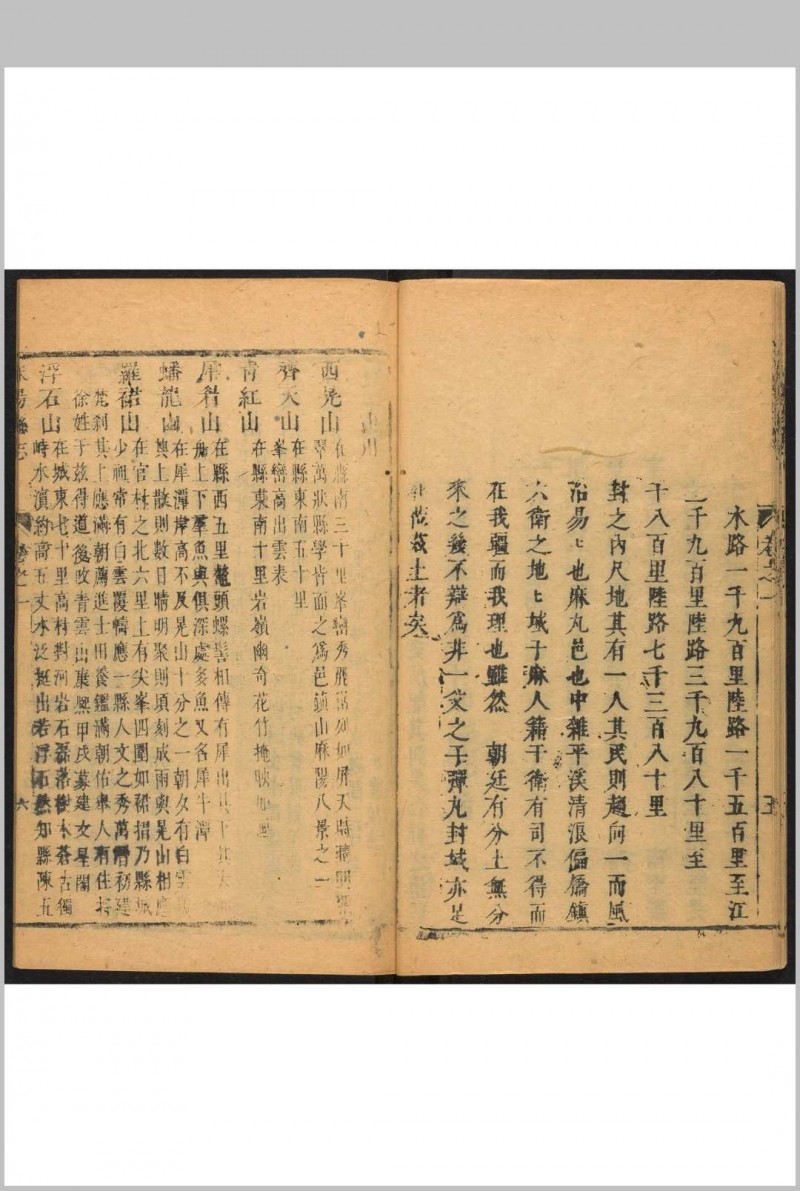 卷之一
五
水路一千九百里陸路一千五百里至江
二千九百里陸路三千九百八十里至
千八百里陸路七千三百八十里
封之內尺地其有一人其民則趨向一而風
治易〻也麻丸邑也中雜平溪清浪偏橋鎮
六衛之地〻域于麻人籍于衛有司不得而
在我疆而我理也雖然 朝廷有分土無分
來之後不辯為非一父之子彈丸封域亦足
土者矣
山川
西晃山
在縣南三十里峯巒秀麗 列如屏天 晴明
翠萬狀縣學皆面之為邑 山麻陽八景之一
齊天山
在縣東南五十里
峯巒高出雲表
青紅山
在縣東南十里岩嶺幽奇花竹掩映
犀 山
在縣西五里 頭螺髻相傳有犀出
上下羣魚與俱深處多魚又名犀牛潭
蟠龍山
在犀潭岸高不及晃山十分之一朝夕有白雲
上散則數日晴明聚則頃刻成雨與晃山相應
羅裙山
在官村之北六里上有尖峯四圍如裙摺乃縣城
少祖常有白雲覆幬應一縣人文之秀萬曆初建
梵刹其上應滿朝薦進士田養鑑滿朝佑舉人有住持
徐姓于茲得道後改青雲山康熙甲戌募建文星閣
浮石山
在城東七十里高村 河岩石磊落樹木蒼古獨
峙水濵約高五丈水泛挺出若浮石然知縣陳五
陽縣志
卷之一
六